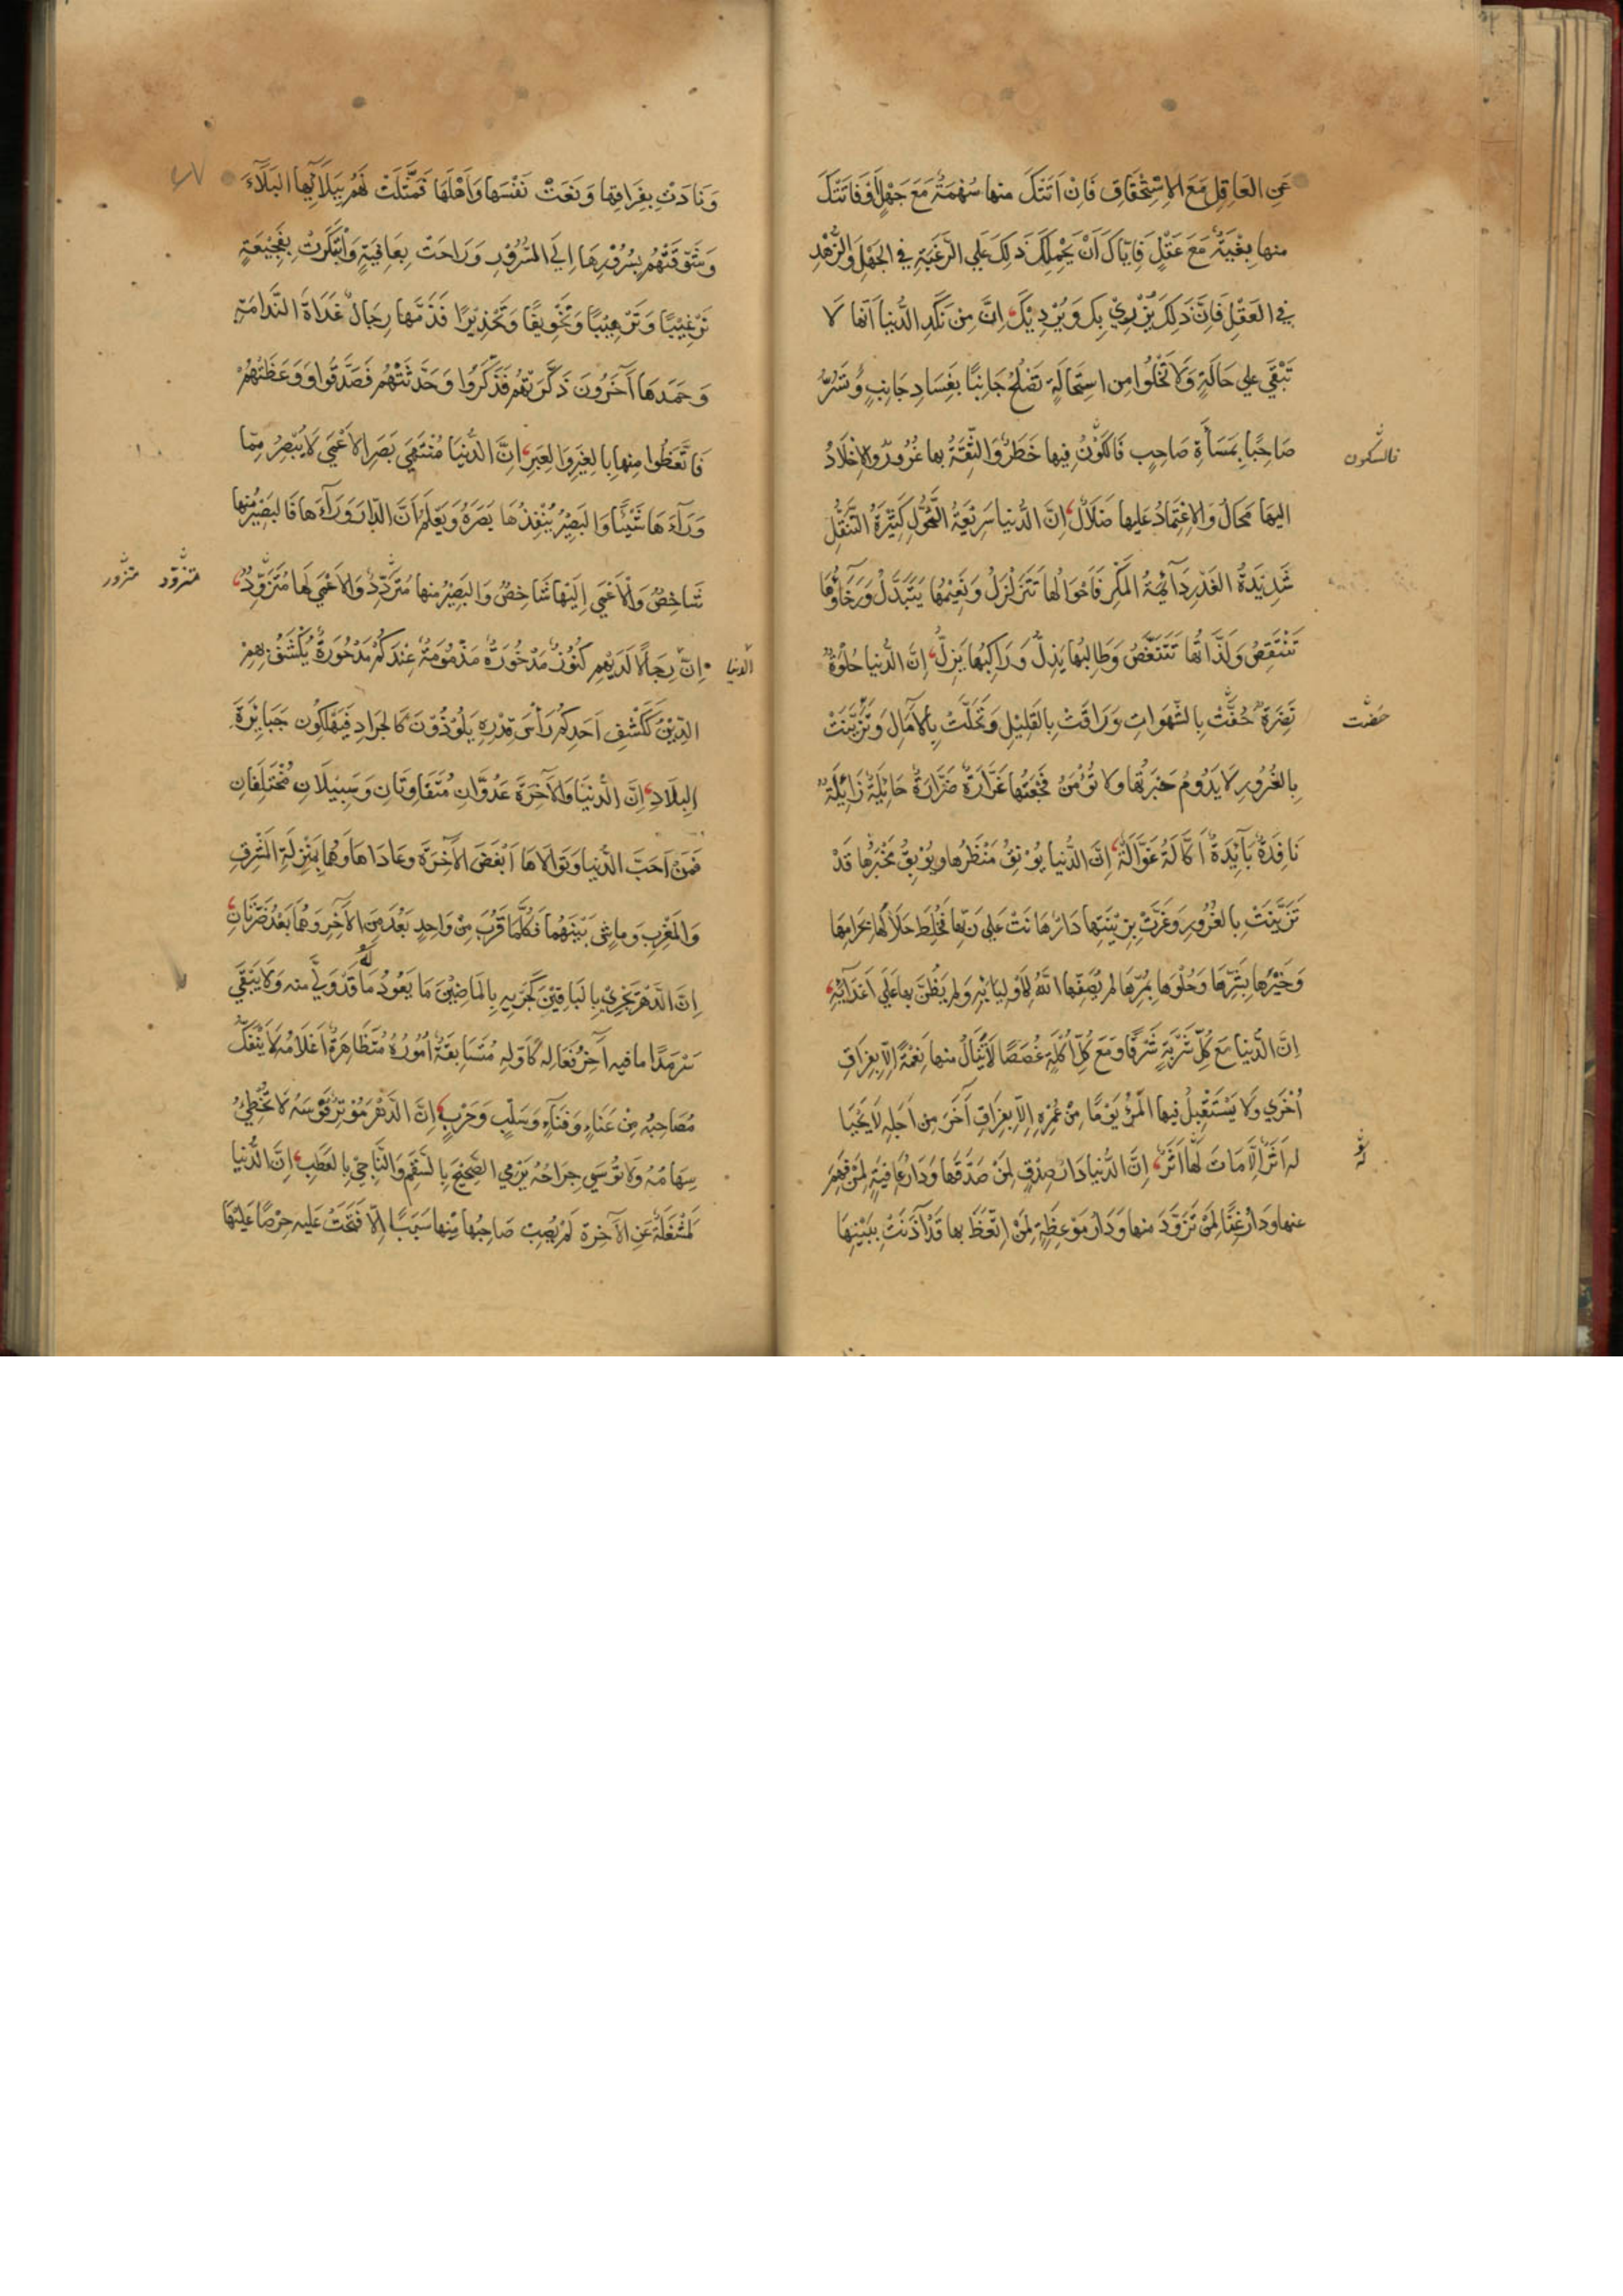 عَنِ العَاقِلِ مَعَ الاِسْتِحْقَاقِ فَاِنْ اَتَتْكَ منها سُهْمَةٌ مَعَ جَهْلٍ اَوْ فَاتَتْكَ
منها بِغْيَةٌ مَعَ عَقْلٍ فَاِيّاكَ اَنْ يَحْمِلَكَ ذَلِكَ عَلى الرَّغْبَةِ في الجَهْلِ وَالزُّهْدِ
في العَقْلِ فَاِنَّ ذَلِكَ يُزْرِيْ بِكَ وَيُرْدِيْكَ اِنَّ مِنْ نَكَدِ الدُّنيا اَنّها لَا
تَبْقَى على حَالَةٍ وَلَا تَخْلُوا مِن اسْتِحَالَةٍ تُصْلِحُ جَانِبًا بِفَسَادِ جَانِبٍ وَتَسُرُّ
صَاحِبًا بِمَسَأَةِ صَاحِبٍ فَالكَوْنُ فِيها خَطَرٌ وَالثِّقَةُ بها غُرُورٌ وَالاِخْلَادُ
فالسكون
اليها مَحَالٌ وَالاِعْتِمَادُ عَليها ضَلَالٌ اِنَّ الدُّنيا سَرِيْعَةُ التَّحَوُّلِ كَثِيْرَةُ التَّنَقُّلِ
شَدِيْدَةُ الغَدْرِ دَآئِمَةُ المَكْرِ فَاَحْوَالُها تَتَزَلْزَلُ وَنَعِيْمُها يَتَبَدَّلُ وَرَخَاؤُها
تَنْتَقِصُ وَلَذَّاتُها تَتَنَغَّصُ وَطَالِبُها يَذِلُّ وَرَاكِبُها يَزِلُّ اِنَّ الدُّنيا حُلْوَةٌ
نَضِرَةٌ حُفَّتْ بِالشَّهَوَاتِ وَرَاقَتْ بِالقَلِيْلِ وَتَحَلَّتْ بِالآمَالِ وَتَزَيَّنَتْ
بِالغُرُورِ لَا يَدُومُ حَبْرَتُها وَلا تُؤْمَنُ فَجْعَتُها غَرَّارَةٌ ضَرَّارَةٌ حَائِلَةٌ زَائِلَةٌ
نَافِدَةٌ بَآئِدَةٌ اَكَّالَةٌ غَوَّالَةٌ اِنَّ الدُّنيا يُوْنِقُ مَنْظَرُها وَيُوْبِقُ مَخْبَرُها قَدْ
تَزَيَّنَتْ بِالغُرُورِ وَغَرَّتْ بِزِيْنَتِها دَارٌ هَانَتْ عَلى رَبِّها فَخُلِطَ حَلَالُها بِحَرَامِها
وَخَيْرُها بِشَرِّها وَحُلْوُها بِمُرِّها لم يُصَفِّها اللهُ لِاَوْلِيَائِهِ وَلم يَضُنَّ بها عَلَى اَعْدَآئِهِ
اِنَّ الدُّنيا مَعَ كُلِّ شَرْبَةٍ شَرَقًا وَمَعَ كُلِّ اُكْلَةٍ غُصَصًا لَا يُنَالُ منها نِعْمَةً اِلّا بِفِرَاقِ
اُخْرَي وَلَا يَسْتَقْبِلُ فيها المَرْءُ يَوْمًا مِنْ عُمُرِهِ اِلَّا بِفِرَاقِ آخَرَ مِن اَجَلِهِ لَا يَحْيَيا
له اَثَرٌ اِلَّا مَاتَ لَها اَثَرٌ اِنَّ الدُّنيا دَارُ صِدْقٍ لِمَنْ صَدَّقَها وَدَارُ عَافِيَةٍ لِمَنْ فَهِمَ
له
عنها وَدَارُ غِنًا لِمَنْ تَزَوَّدَ منها وَدَارُ مَوْعِظَةٍ لِمَنْ اِتَّعَظَ بها قَدْ آذَنَتْ بِبَيْنِها
وَنَادَتْ بِفِرَاقِها وَنَعَتْ نَفْسَها وَاَهْلَها فَمَثَّلَتْ لَهُم بِبَلَآئِها البَلَاءَ
وَشَوَّقَتْهُم بِسُرُوْرِهَا اِلَى السُّرُوْرِ وَرَاحَتْ بِعَافِيَةٍ وَابْتَكَرَتْ بِفَجِيْعَةٍ
تَرْغِيْبًا وَتَرْهِيْبًا وَتَخْوِيفًا وَتَحْذِيْرًا فَذَمَّها رِجَالٌ غَدَاةَ النَّدَامَةِ
وَحَمَدَها آخَرُونَ ذَكَّرَتْهُم فَذَكَرُوا وَحَدَّثَتْهُم فَصَدَّقُوا وَوَعَظَتْهُمْ
فَاتَّعَظُوا مِنها بِالغِيَرِ وَالعِبَرِ اِنَّ الدُّنْيَا مُنْتَهَى بَصَرِ الاَعْمَى لَا يُبْصِرُ مِمّا
وَرَآءَهَا شَيْئًا وَالبَصِيْرُ يُنْفِذُهَا بَصَرَهُ وَيَعْلَمُ اَنَّ الدَّارَ وَرَآءَها فَالبَصِيْرُ منها
شَاخِصٌ وَالاَعْمَى اِلَيْها شَاخِصٌ وَالبَصِيْرُ منها مُتَزَوِّدٌ وَالاَعْمَى لَها مُتَزَوِّدٌ
متزوّد متزور
اِنَّ رِجَالًا لَدَيْهِم كُنُوْزٌ مَذْخُورَةٌ مَذْمُومَةٌ عِنْدَكُمْ مَدْحُورَةٌ يُكْشَفُ بِهِمْ
الدنيا
الدِّيْنُ كَكَشْفِ اَحَدِكُمْ رَأْسَ قِدْرِهِ يَلُوْذُوْنَ كَالجَرَادِ فَيُهْلِكُونَ جَبَابِرَةَ
البِلَادِ اِنَّ الدُّنْيَا وَالآخِرَةَ عَدُوَّانِ مُتَفَاوِتَانِ وَسَبِيْلَانِ مُخْتَلِفَانِ
فَمَنْ اَحَبَّ الدُّنيا وَتَوَالاها اَبْغَضَ الآخِرَةَ وعَادَاهَا وَهُما بِمَنْزِلَةِ الشَّرْقِ
وَالمَغْرِبِ وَمَاشٍ بَيْنَهُما فَكُلَّمَا قَرُبَ مِنْ وَاحِدٍ بَعُدَ مِنَ الآخَرِ وَهُمَا بَعْدُ ضَرَّتَانِ
اِنَّ الدَّهْرَ يَجْرِيْ بِالبَاقِيْنَ كَجَرْيِهِ بِالمَاضِيْنَ مَا يَعُودُ مَا قَدْ وَلَّى منه وَلَا يَبْقَى
سَرْمَدًا ما فيه آخِرُ فَعَالِهِ كَاَوَّلِهِ مُتَسَابِقَةٌ اُمُورُهُ مُتَظَاهِرَةٌ اَعْلَامُهُ لَا يَنْفَكُّ
مُصَاحِبُهُ مِنْ عَنَاءٍ وَفَنَآءٍ وَسَلْبٍ وَحَرْبٍ اِنَّ الدَّهْرَ مُوْتِرٌ قَوْسَهُ لَا تُخْطِيُ
سِهَامُهُ وَلَا تُوْسَى جِرَاحُهُ يَرْمِي الصَّحِيْحَ بِالسَّقَمِ وَالنَّاجِيَ بِالعَطَبِ اِنَّ الدُّنْيا
لَمَشْغَلَةٌ عَنِ الآخِرَةِ لَمْ يُصِبْ صَاحِبُها مِنْها سَبَبًا اِلّا فَتَحَتْ عَلَيه حِرْصًا عَلَيْها